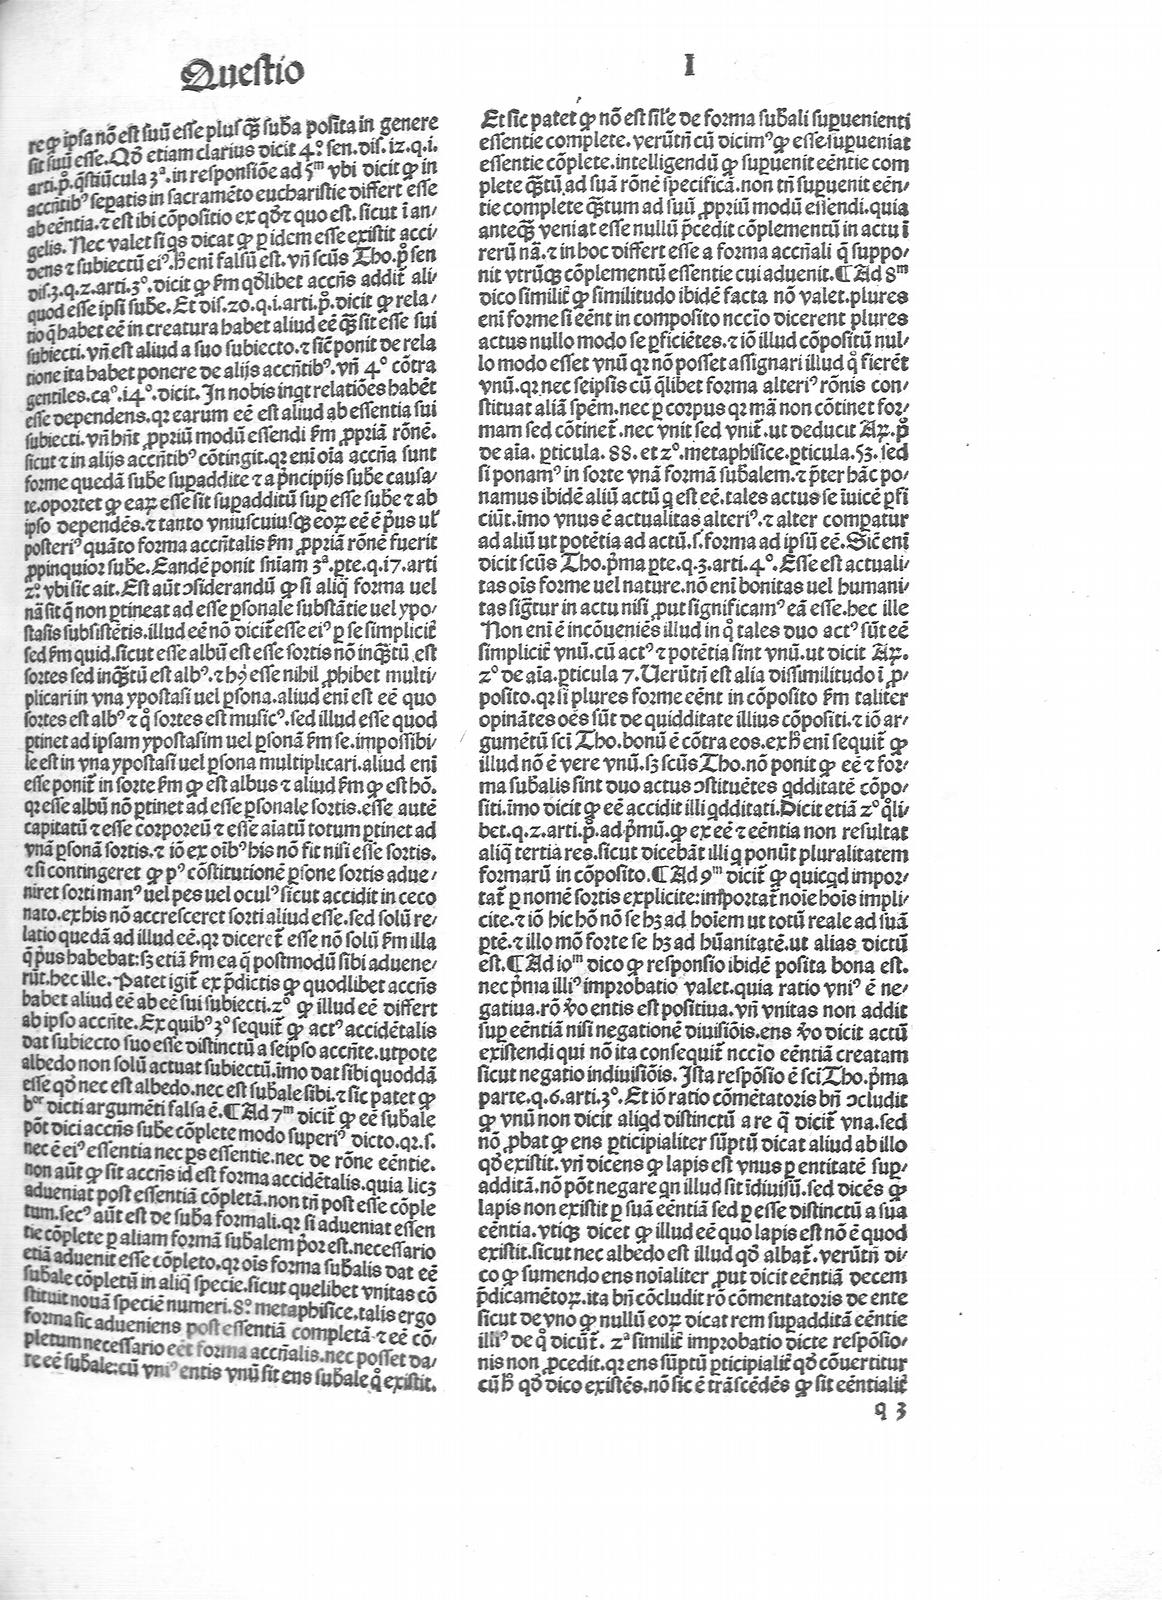 Questio
I
re ꝙ ipsa nō est suū esse plusꝗ̄ suba posita in genere
sit suū esse. Qd̄ etiam clarius dicit 4°. sen. dis. 12. q. i.
arti. pͦ. q̄stiūcula 3ᵃ. in responsiōe ad 5ᵐ vbi dicit ꝙ in
accn̄tibꝰ sepatis in sacramēto eucharistie differt esse
ab eēntia. ⁊ est ibi cōpositio ex qd̄ ⁊ quo est. sicut ī an/
gelis. Nec valet si qs dicat ꝙ ꝑ idem esse existit acci/
dens ⁊ subiectū eiꝰ. hͦ eni falsū est. vn̄ scūs Tho. pͦ sen
dis. 3. q. 2. arti. 3°. dicit ꝙ ẜm qd̄libet accn̄s addit̄ ali/
quod esse ipsi sube. Et dis. 20. q. i. arti. pͦ. dicit ꝙ rela/
tio q̄ habet eē in creatura habet aliud eē ꝗ̄ sit esse sui
subiecti. vn̄ est aliud a suo subiecto. ⁊ sic̄ ponit de rela
tione ita habet ponere de alijs accn̄tibꝰ. vn̄ 4° cōtra
gentiles. ca°. i4°. dicit. In nobis inqt relatiōes habēt
esse dependens. qꝛ earum eē est aliud ab essentia sui
subiecti. vn̄ hn̄t ꝓpriū modū essendi ẜm ꝓpriā rōnē.
sicut ⁊ in alijs accn̄tibꝰ cōtingit. qꝛ eni oīa accn̄a sunt
forme quedā sube supaddite ⁊ a pͥncipijs sube causa/
te. oportet ꝙ eaꝝ esse sit supadditū sup esse sube ⁊ ab
ipso dependēs. ⁊ tanto vniuscuiusꝗ eoꝝ eē ē pͥus ul̄
posteriꝰ quāto forma accn̄talis ẜm ꝓpriā rōnē fuerit
ꝓpinquior sube. Eandē ponit sn̄iam 3ᵃ. pte. q. i7. arti
2°. vbi sic ait. Est aūt ↄsiderandū ꝙ si aliq̄ forma uel
nā sit q̄ non ptineat ad esse ꝑsonale substātie uel ypo/
stasis subsistētis. illud eē nō dicit̄ esse eiꝰ ꝑ se simplicit̄
sed ẜm quid. sicut esse albū est esse sortis nō inꝗ̄tū est
sortes sed inꝗ̄tū est albꝰ. ⁊ hꝰ esse nihil ꝓhibet multi/
plicari in vna ypostasi uel ꝑsona. aliud eni est eē quo
sortes est albꝰ ⁊ qͦ sortes est musicꝰ. sed illud esse quod
ptinet ad ipsam ypostasim uel ꝑsonā ẜm se. impossibi/
le est in vna ypostasi uel ꝑsona multiplicari. aliud eni
esse ponit̄ in sorte ẜm ꝙ est albus ⁊ aliud ẜm ꝙ est hō.
qꝛ esse albū nō ptinet ad esse ꝑsonale sortis. esse autē
capitatū ⁊ esse corporeū ⁊ esse aīatū totum ptinet ad
vnā ꝑsonā sortis. ⁊ iō ex oībꝰ his nō fit nisi esse sortis.
⁊ si contingeret ꝙ pꝰ cōstitutionē ꝑsone sortis adue/
niret sorti manꝰ uel pes uel oculꝰ sicut accidit in ceco
nato. ex his nō accresceret sorti aliud esse. sed solū re/
latio quedā ad illud eē. qꝛ diceret̄ esse nō solū ẜm illa
q̄ pͥus habebat: sꝫ etiā ẜm ea q̄ postmodū sibi aduene/
rūt. hec ille. Patet igit̄ ex p̄dictis ꝙ quodlibet accn̄s
habet aliud eē ab eē sui subiecti. 2°. ꝙ illud eē differt
ab ipso accn̄te. Ex quibꝰ 3° sequit̄ ꝙ actꝰ accidētalis
dat subiecto suo esse distinctū a seipso accn̄te. utpote
albedo non solū actuat subiectū. īmo dat sibi quoddā
esse qd̄ nec est albedo. nec est subale sibi. ⁊ sic patet ꝙ
bͦʳ dicti argumēti falsa ē. ¶ Ad 7ᵐ dicit̄ ꝙ eē subale
pōt dici accn̄s sube cōplete modo superiꝰ dicto. qꝛ. s.
nec ē eiꝰ essentia nec ps essentie. nec de rōne eēntie.
non aūt ꝙ sit accn̄s id est forma accidētalis. quia licꝫ
adueniat post essentiā cōpletā. non tn̄ post esse cōple
tum. secꝰ aūt est de suba formali. qꝛ si adueniat essen
tie cōplete ꝑ aliam formā subalem pͥor est. necessario
etiā aduenit esse cōpleto. qꝛ oīs forma subalis dat eē
subale cōpletū in aliq̄ specie. sicut quelibet vnitas cō
stituit nouā speciē numeri. 8°. metaphisice. talis ergo
forma sic adueniens post essentiā completā ⁊ eē cō/
pletum necessario eēt forma accn̄alis. nec posset da/
re eē subale: cū vniꝰ entis vnū sit ens subale qͦ existit.
Et sic patet ꝙ nō est sil̄e de forma subali supuenienti
essentie complete. verūtn̄ cū dicimꝰ ꝙ esse supueniat
essentie cōplete. intelligendū ꝙ supuenit eēntie com
plete ꝗ̄tū ad suā rōnē specificā. non tn̄ supuenit eēn/
tie complete ꝗ̄tum ad suū ꝓpriū modū essendi. quia
anteꝗ̄ veniat esse nullū p̄cedit cōplementū in actu ī
rerū nā. ⁊ in hoc differt esse a forma accn̄ali q̄ suppo/
nit vtrūꝗ cōplementū essentie cui aduenit. ¶ Ad 8ᵐ
dico similit̄ ꝙ similitudo ibidē facta nō valet. plures
eni forme si eēnt in composito nccīo dicerent plures
actus nullo modo se ꝑficiētes. ⁊ iō illud cōpositū nul/
lo modo esset vnū qꝛ nō posset assignari illud qͦ fierēt
vnū. qꝛ nec seipsis cū q̄libet forma alteriꝰ rōnis con/
stituat aliā spēm. nec ꝑ corpus qꝛ mā non cōtinet for/
mam sed cōtinet̄. nec vnit sed vnit̄. ut deducit Aꝝ. pͦ
de aīa. ꝑticula. 88. et 2°. metaphisice. ꝑticula. 53. sed
si ponamꝰ in sorte vnā formā subalem. ⁊ p̄ter hāc po/
namus ibidē aliū actū q est eē. tales actus se īuicē ꝑfi
ciūt. īmo vnus ē actualitas alteriꝰ. ⁊ alter compatur
ad aliū ut potētia ad actū. s. forma ad ipsū eē. Sic̄ eni
dicit scūs Tho. pͥma pte. q. 3. arti. 4°. Esse est actuali/
tas oīs forme uel nature. nō eni bonitas uel humani/
tas sigͬtur in actu nisi ꝓut significamꝰ eā esse. hec ille
Non eni ē incōueniēs illud in qͦ tales duo actꝰ sūt eē
simplicit̄ vnū. cū actꝰ ⁊ potētia sint vnū. ut dicit Aꝝ.
2° de aīa. ꝑticula 7. Uerūtn̄ est alia dissimilitudo ī ꝓ/
posito. qꝛ si plures forme eēnt in cōposito ẜm taliter
opinātes oēs sūt de quidditate illius cōpositi. ⁊ iō ar/
gumētū scī Tho. bonū ē cōtra eos. ex hͦ eni sequit̄ ꝙ
illud nō ē vere vnū. sꝫ scūs Tho. nō ponit ꝙ eē ⁊ for/
ma subalis sint duo actus ↄstituētes qdditatē cōpo/
siti. īmo dicit ꝙ eē accidit illi qdditati. Dicit etiā 2° qͦli/
bet. q. 2. arti. pͦ. ad pͥmū. ꝙ ex eē ⁊ eēntia non resultat
aliq̄ tertia res. sicut dicebāt illi q ponūt pluralitatem
formarū in cōposito. ¶ Ad 9ᵐ dicit̄ ꝙ quicqd impor/
tat̄ ꝑ nomē sortis explicite: importat̄ noīe hoīs impli/
cite. ⁊ iō hic hō nō se hꝫ ad hoīem ut totū reale ad suā
ptē. ⁊ illo mō forte se hꝫ ad hūanitatē. ut alias dictū
est. ¶ Ad ioᵐ dico ꝙ responsio ibidē posita bona est.
nec pͥma illiꝰ improbatio valet. quia ratio vniꝰ ē ne/
gatiua. rō v̊o entis est positiua. vn̄ vnitas non addit
sup eēntiā nisi negationē diuisiōis. ens v̊o dicit actū
existendi qui nō ita consequit̄ nccīo eēntiā creatam
sicut negatio indiuisiōis. Ista respōsio ē scī Tho. pͥma
parte. q. 6. arti. 3°. Et iō ratio cōmētatoris bn̄ ↄcludit
ꝙ vnū non dicit aliqd distinctū a re q̄ dicit̄ vna. sed
nō ꝓbat ꝙ ens ꝑticipialiter sūptū dicat aliud ab illo
qd̄ existit. vn̄ dicens ꝙ lapis est vnus ꝑ entitatē sup/
additā. nō pōt negare qn illud sit īdiuisū. sed dicēs ꝙ
lapis non existit ꝑ suā eēntiā sed ꝑ esse distinctū a sua
eēntia. vtiꝗ dicet ꝙ illud eē quo lapis est nō ē quod
existit. sicut nec albedo est illud qd̄ albat̄. verūtn̄ di/
co ꝙ sumendo ens noīaliter ꝓut dicit eēntiā decem
p̄dicamētoꝝ. ita bn̄ cōcludit rō cōmentatoris de ente
sicut de vno ꝙ nullū eoꝝ dicat rem supadditā eēntie
illiꝰ de qͦ dicūt̄. 2ᵃ similit̄ improbatio dicte respōsio/
nis non ꝓcedit. qꝛ ens sūptū ꝑticipialit̄ qd̄ cōuertitur
cū hͦ qd̄ dico existēs. nō sic ē trāscēdēs ꝙ sit eēntialit̄
q 3